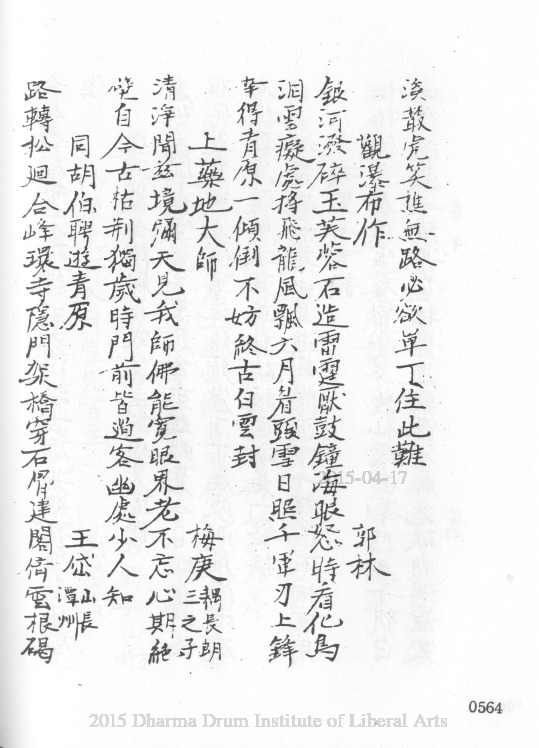 淡鼓虎笑誰無路必欲單丁住此難
觀瀑布作 郭林
銀河潑碎玉芙蓉石造雷霆獸鼓鐘海眼怒時看化鳥
洞雲癡處搏飛龍風飄六月着頭雪日照千軍刃上鋒
幸得青原一傾倒不妨終古白雲封
上藥地大師 梅庚 耦長朗三之子
清淨聞茲境彌天見我師佛能寬眼界老不忘心期絕
壁自今古枯荆獨歲時門前皆過客幽處少人知
同胡伯聘遊青原 王岱 山長潭州
路轉松迴合峰環寺隱門架橋穿石骨建閣倚雲根碣
0564
2015-04-17
2015 Dharma Drum Institute of Liberal Arts